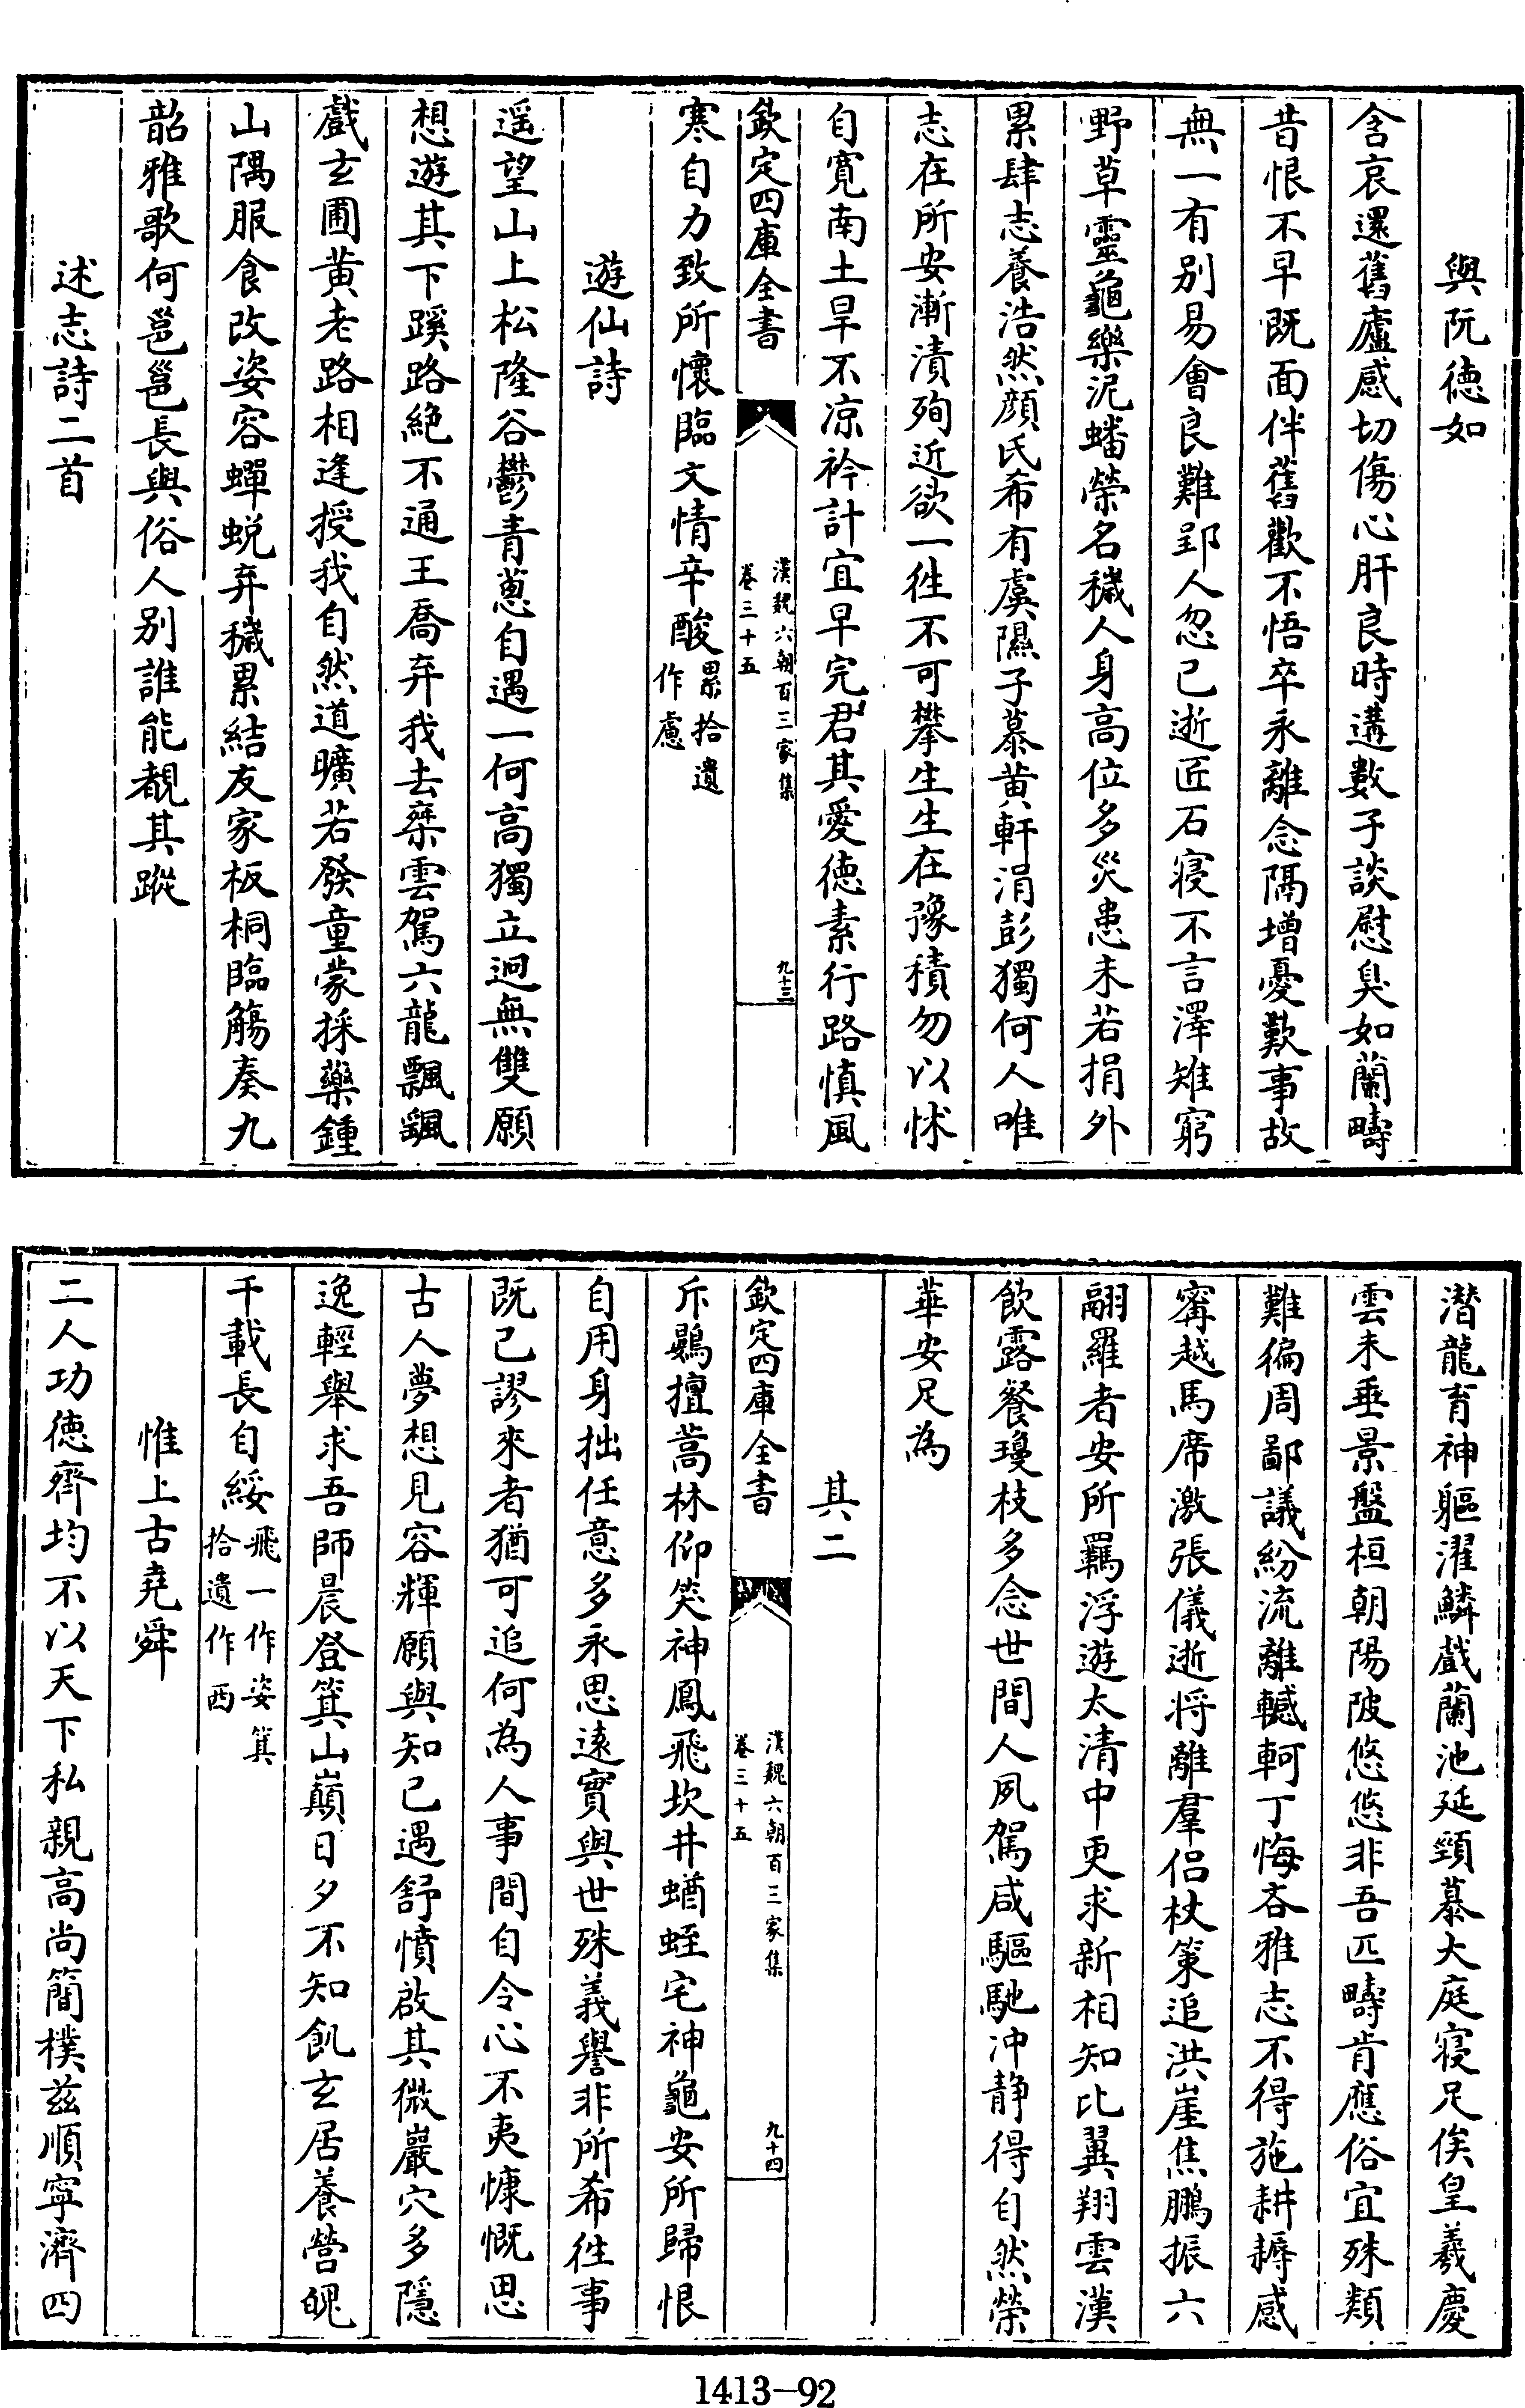 與阮徳如
含哀還舊廬感切傷心肝良時遘數子談慰臭如蘭疇
昔恨不早既面侔舊歡不悟卒永離念隔增憂歎事故
無一有别易會良難郢人忽已逝匠石寝不言澤雉窮
野草靈龜樂泥蟠榮名穢人身高位多災患未若捐外
累肆志養浩然顔氏希有虞隰子慕黄軒涓彭獨何人唯
志在所安漸漬殉近欲一徃不可攀生生在豫積勿以怵
自寛南土旱不凉衿計宜早完君其愛徳素行路慎風
欽定四庫全書
漢魏六朝百三家集
卷三十五
九十三
寒自力致所懷臨文情辛酸累拾遺
作慮
遊仙詩
遥望山上松隆谷鬱青蔥自遇一何高獨立迥無雙願
想遊其下蹊路絶不通王喬弃我去椉雲駕六龍飄颻
戲玄圃黄老路相逢授我自然道曠若發童蒙採藥鍾
山隅服食改姿容蟬蜕弃穢累結友家板桐臨觴奏九
韶雅歌何邕邕長與俗人别誰能覩其蹤
述志詩二首
潜龍育神軀濯鱗戲蘭池延頸慕大庭寝足俟皇羲慶
雲未垂景盤桓朝陽陂悠悠非吾匹疇肯應俗宜殊類
難徧周鄙議紛流離轗軻丁悔吝雅志不得施耕耨感
寗越馬席激張儀逝将離羣侣杖策追洪崖焦鵬振六
翮羅者安所羈浮遊太清中更求新相知比翼翔雲漢
飲露餐瓊枝多念世間人夙駕咸驅馳沖静得自然榮
華安足為
其二
欽定四庫全書
漢魏六朝百三家集
卷三十五
九十四
斥鷃擅蒿林仰笑神鳳飛坎井蝤蛭宅神龜安所歸恨
自用身拙任意多永思遠實與世殊義譽非所希徃事
既已謬來者猶可追何為人事間自令心不夷慷慨思
古人夢想見容輝願與知已遇舒憤啟其微巖穴多隱
逸輕舉求吾師晨登箕山巔日夕不知飢玄居養營魄
千載長自綏飛一作姿箕
拾遺作西
惟上古堯舜
二人功徳齊均不以天下私親髙尚簡樸兹順寧濟四
1413—92